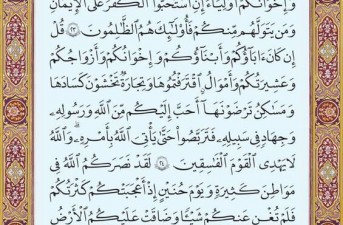 وَإِخْوَانَكُمْ أَوْلِيَاءَ إِنِ اسْتَحَبُّوا الْكُفْرَ عَلَى الْإِيمَانِ
وَمَن يَتَوَلَّهُم مِّنكُمْ فَأُولَٰئِكَ هُمُ الظَّالِمُونَ ٢٣ قُلْ
إِن كَانَ آبَاؤُكُمْ وَأَبْنَاؤُكُمْ وَإِخْوَانُكُمْ وَأَزْوَاجُكُمْ
وَعَشِيرَتُكُمْ وَأَمْوَالٌ اقْتَرَفْتُمُوهَا وَتِجَارَةٌ تَخْشَوْنَ كَسَادَهَا
وَمَسَاكِنُ تَرْضَوْنَهَا أَحَبَّ إِلَيْكُم مِّنَ اللَّهِ وَرَسُولِهِ
وَجِهَادٍ فِي سَبِيلِهِ فَتَرَبَّصُوا حَتَّىٰ يَأْتِيَ اللَّهُ بِأَمْرِهِ وَاللَّهُ
لَا يَهْدِي الْقَوْمَ الْفَاسِقِينَ ٢٤ لَقَدْ نَصَرَكُمُ اللَّهُ فِي
مَوَاطِنَ كَثِيرَةٍ وَيَوْمَ حُنَيْنٍ إِذْ أَعْجَبَتْكُمْ كَثْرَتُكُمْ
فَلَمْ تُغْنِ عَنكُمْ شَيْئًا وَضَاقَتْ عَلَيْكُمُ الْأَرْضُ